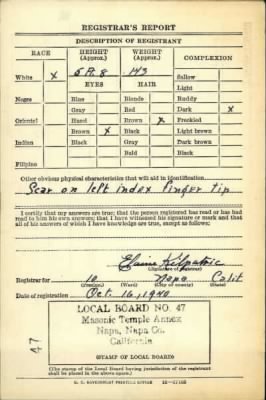 REGISTRAR'S REPORT
DESCRIPTION OF REGISTRANT
RACE HEIGHT (Approx.) WEIGHT (Approx.) COMPLEXION
White x 5 ft. 8 143 Sallow
EYES HAIR Light
Negro Blue Blonde Ruddy
Gray Red Dark x
Oriental Hazel Brown x Freckled
Brown x Black Light brown
Indian Black Gray Dark brown
Bald Black
Filipino
Other obvious physical characteristics that will aid in identification
Scar on left index finger tip
I certify that my answers are true; that the person registered has read or has had
read to him his own answers; that I have witnessed his signature or mark and that
all of his answers of which I have knowledge are true, except as follows:
Elaine Kilpatric
(Signature of registrar)
Registrar for 10 Napa Calif
(Precinct) (Ward) (City or county) (State)
Date of registration Oct. 16, 1940
LOCAL BOARD NO. 47
Masonic Temple Annex
Napa, Napa Co.
California
47
(STAMP OF LOCAL BOARD)
(The stamp of the Local Board having jurisdiction of the registrant
shall be placed in the above space.)
U. S. GOVERNMENT PRINTING OFFICE